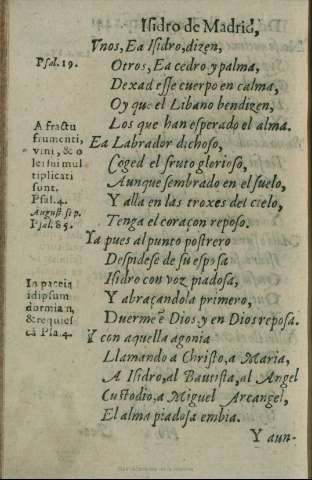 Isidro de Madrid,
Vnos, Ea Isidro, dizen,
Otros, Ea cedro y palma,
Dexad esse cuerpo en calma,
Oy que el Libano bendizen,
Los que han esperado el alma.
Ea Labrador dichoso,
Coged el fruto glorioso,
Aunque sembrado en el suelo,
Y alla en las troxes del cielo,
Tenga el coraçon reposo.
Ya pues al punto postrero
Despidese de su esposa
Isidro con voz piadosa,
Y abraçandola primero,
Duerme ẽ Dios, y en Dios reposa.
Y con aquella agonia
Llamando a Christo, a Maria,
A Isidro, al Bautista, al Angel
Custodio, a Miguel Arcangel,
El alma piadosa embia.
Y aun-
Psal. 19.
A fructu
frumenti,
vini, & o
lei sui mul
tiplicati
sunt.
Psal. 4.
August. sup.
Psal. 85.
In pace in
idipsum
dormian,
& requies
cã Psa. 4.